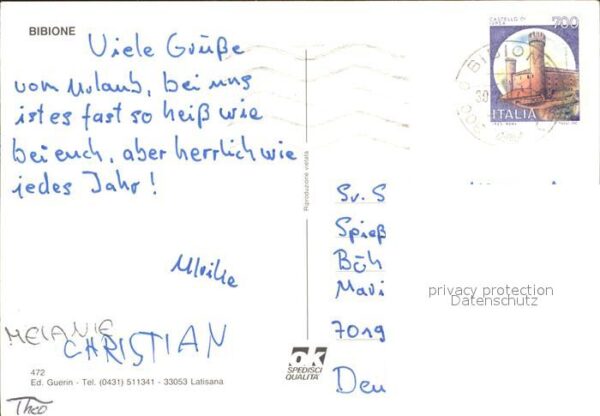 BIBIONE
Viele Grüße
vom Urlaub, bei uns
ist es fast so heiß wie
bei euch, aber herrlich wie
jedes Jahr!
Ulrike
MELANIE
CHRISTIAN
472
Ed. Guerin - Tel. (0431) 511341 - 33053 Latisana
Theo
Riproduzione vietata
ok
SPEDISCI
QUALITÀ
CASTELLO DI
IVREA
700
ITALIA
BIBIONE
Spieß
Böh
7019
Deu
privacy protection
Datenschutz